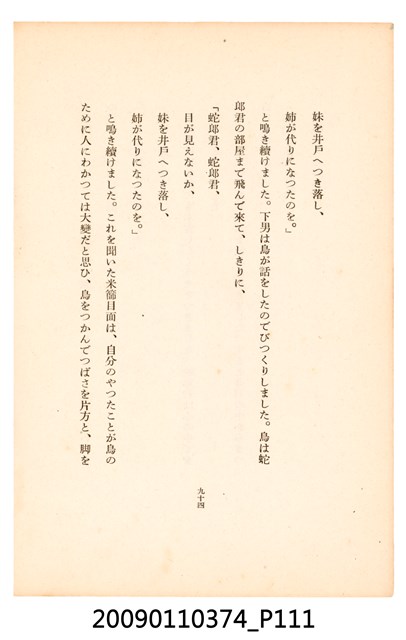 妹を井戸へつき落し、
姉が代りになつたのを。」
と鳴き續けました。下男は鳥が話をしたのでびつくりしました。鳥は蛇
郎君の部屋まで飛んで來て、しきりに、
「蛇郎君、蛇郎君、
目が見えないか、
妹を井戸へつき落し、
姉が代りになつたのを。」
と鳴き續けました。これを聞いた米篩目面は、自分のやつたことが鳥の
ために人にわかつては大變だと思ひ、鳥をつかんでつばさを片方と、脚を
九十四
20090110374_P111